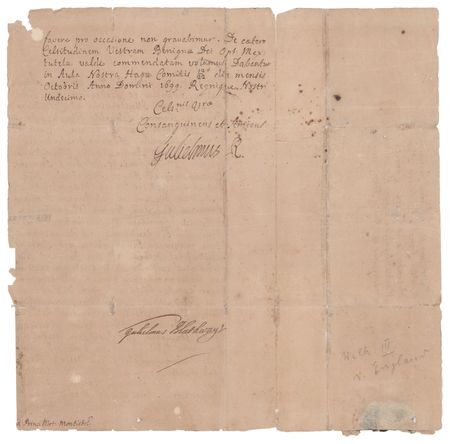 favere pro occasione non gravabimur. De cætero
Celsitudinem Vestram Benignæ Dei Opt. Max
tutelæ valde commendatam volumus Dabantur
in Aula Nostra Hagæ Comitis die mensis
Octobris Anno Domini 1699. Regnique Nostri
Undecimo.
Celsnis Vræ
Consanguineus et Amicus
Gulielmus R.
Gulielmus Blathwayt
Wilh III
v. England